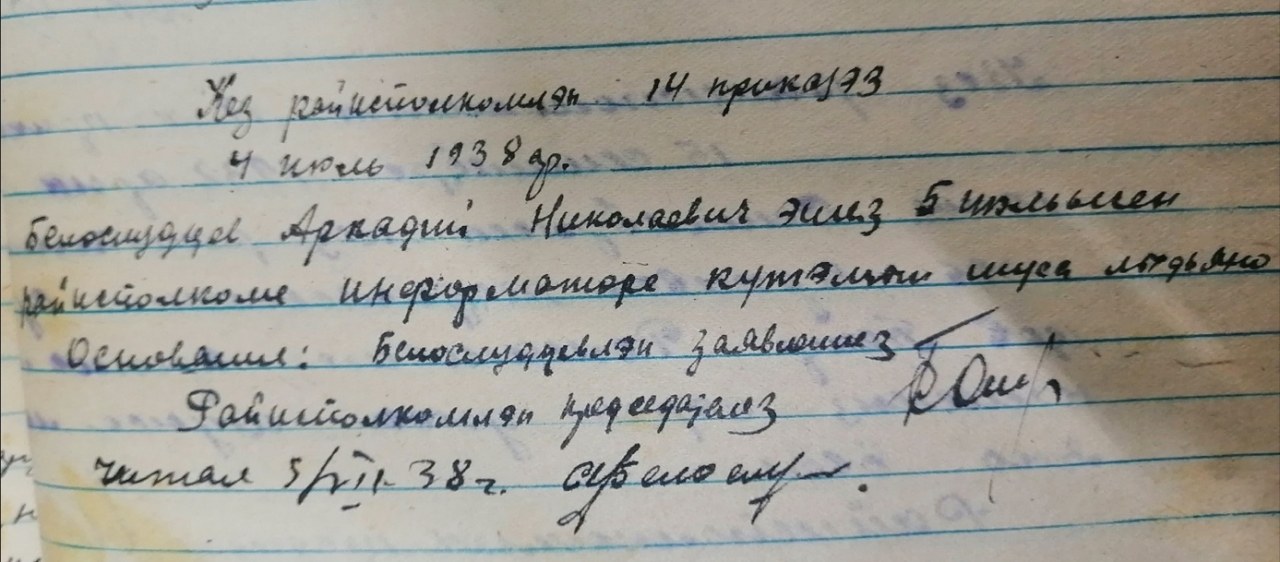 Кез райисполкомлэн 14 приказэз
4 июль 1938 ар.
Белослудцев Аркадий Николаевич эшез 5 июльысен
райисполкоме информаторе кутэмын шуса лыдъяно
Основания: Белослудцевлэн заявлениез
Райисполкомлэн председателез
Читал 5/VII-38 г.